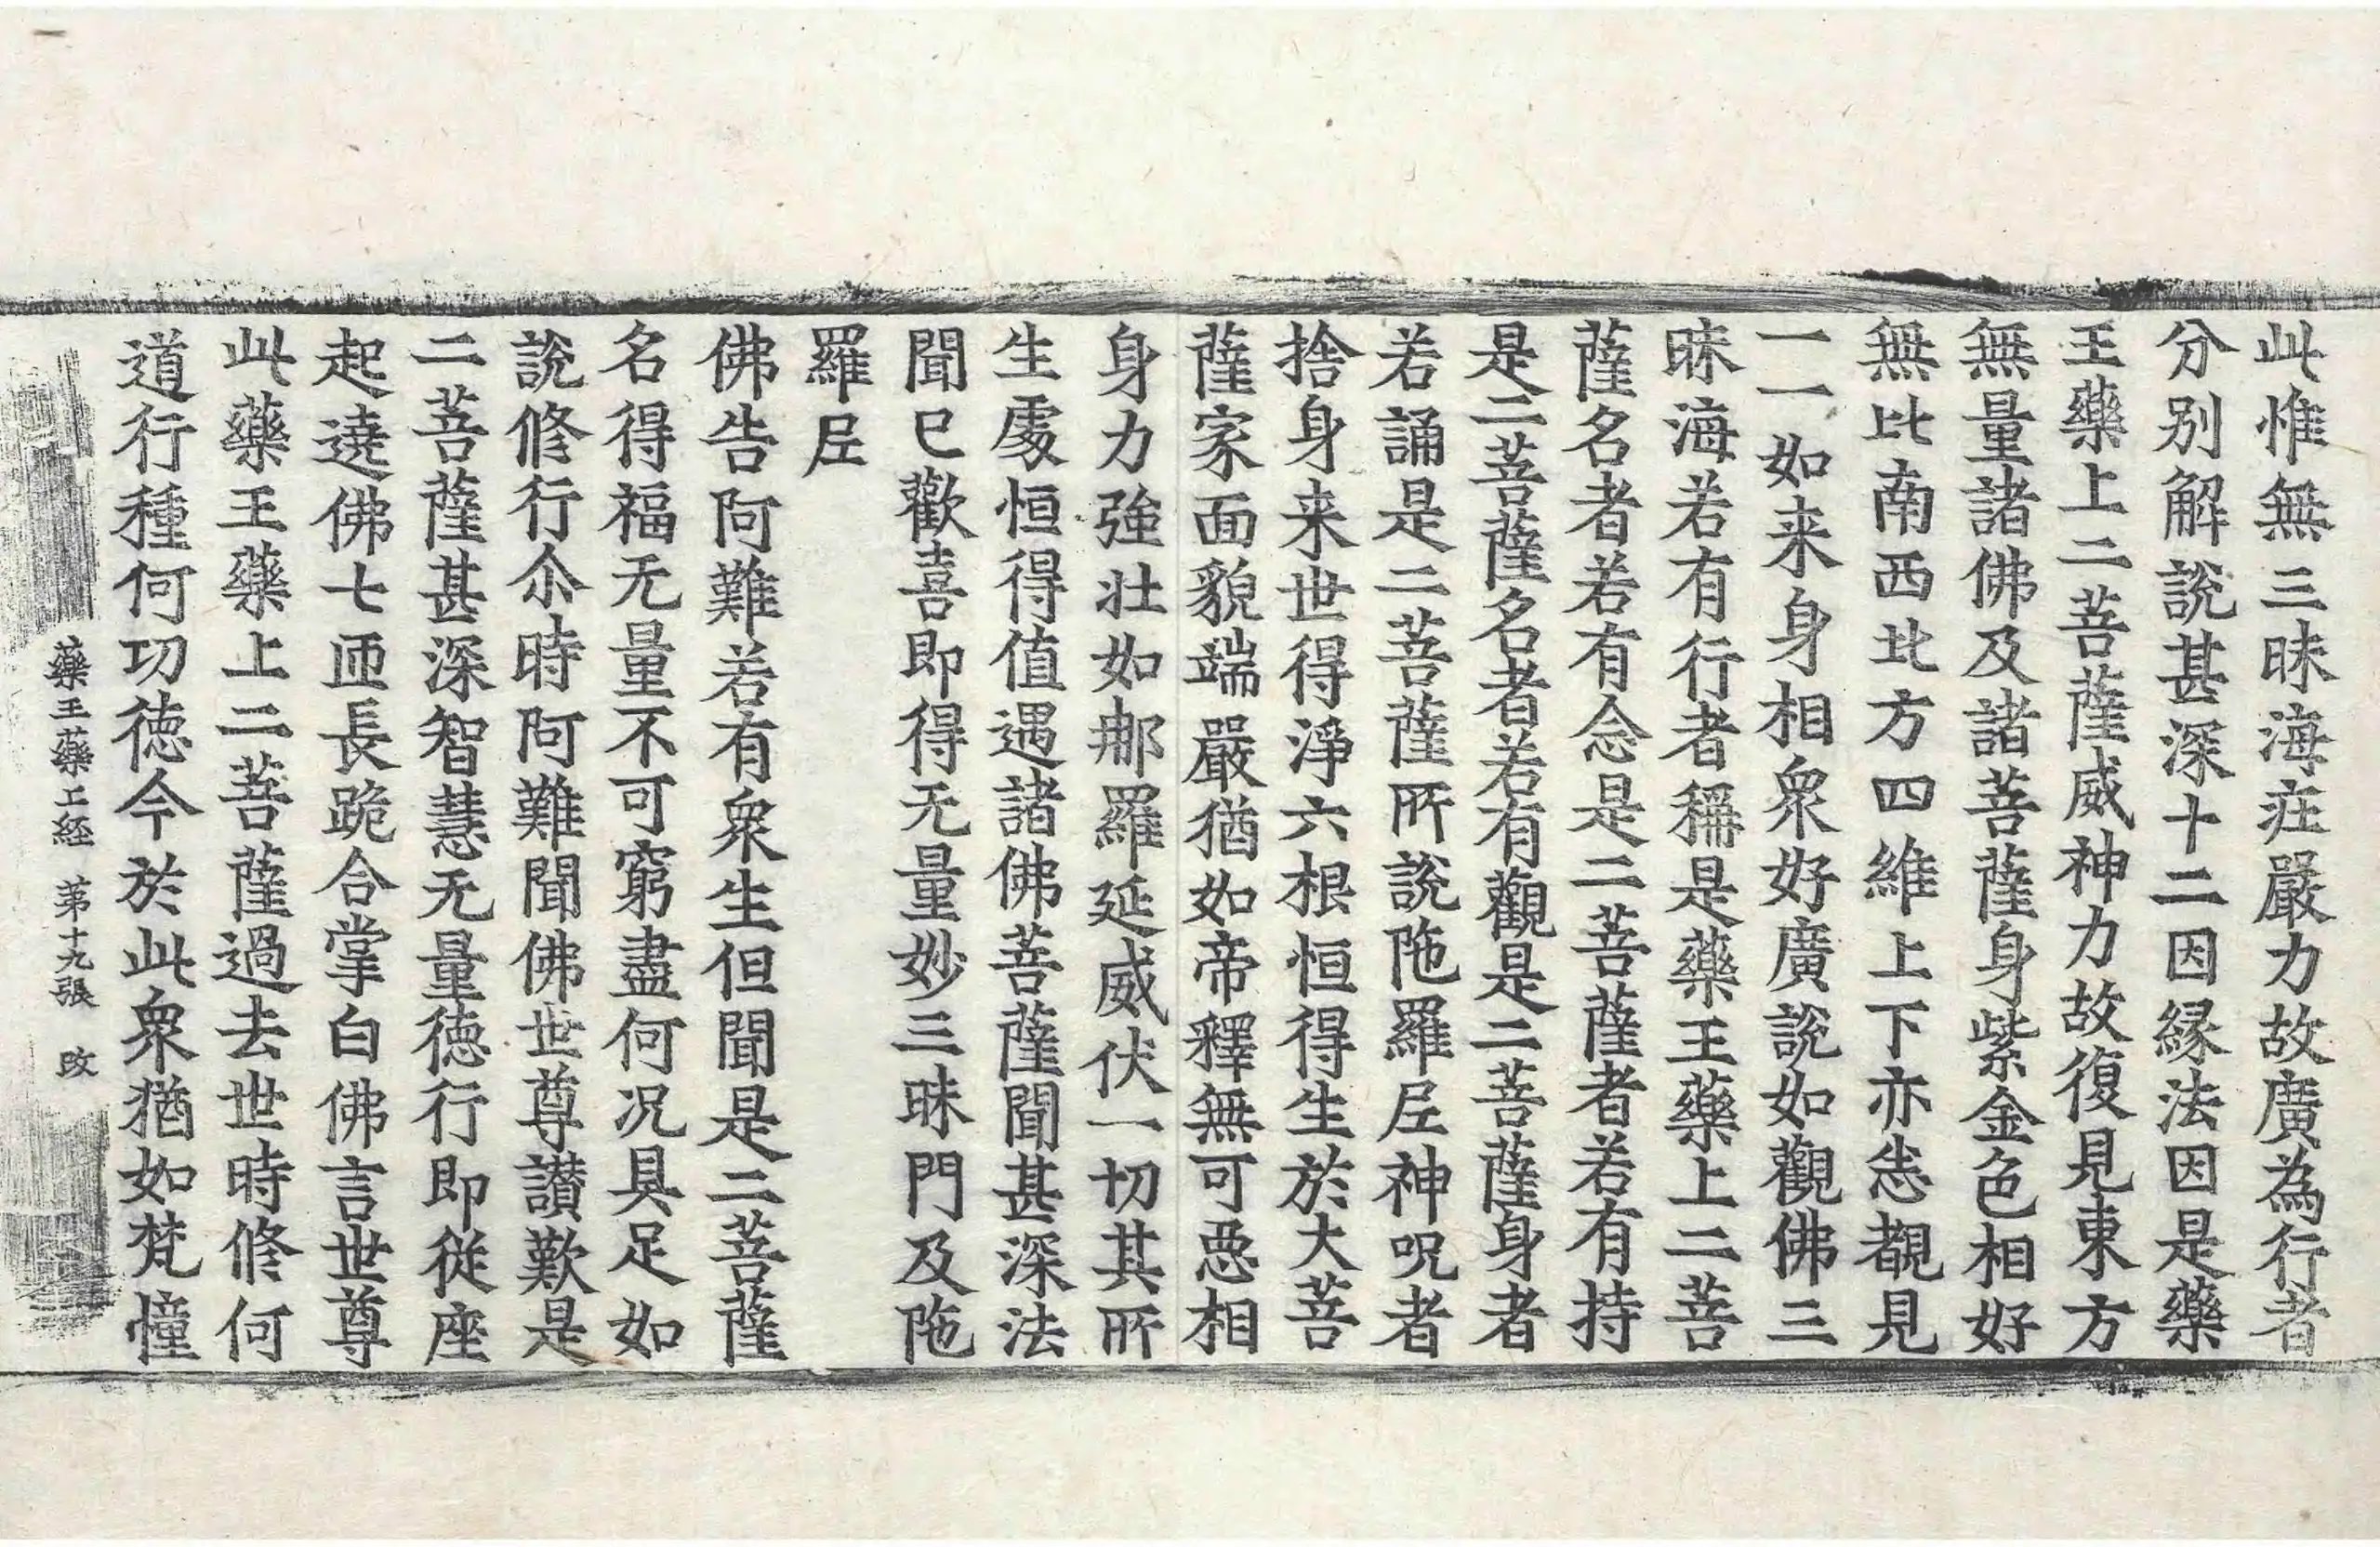 此惟無三昧海莊嚴力故廣為行者
分別解說甚深十二因縁法因是藥
王藥上二菩薩威神力故復見東方
無量諸佛及諸菩薩身紫金色相好
無比南西北方四維上下亦忩覩見
一一如来身相衆好廣說如觀佛三
昧海若有行者稱是藥王藥上二菩
薩名者若有念是二菩薩者若有持
是二菩薩名者若有觀是二菩薩身者
若誦是二菩薩所說陁羅𡰱神呪者
捨身来世得淨六根恒得生於大菩
薩家面貌端嚴猶如帝釋無可惡相
身力強壮如那羅延威伏一切其所
生處恒得值遇諸佛菩薩聞甚深法
聞已歡喜即得无量妙三昧門及陁
羅𡰱
佛告阿難若有衆生但聞是二菩薩
名得福无量不可窮盡何況具足如
說修行尒時阿難聞佛世尊讃歎是
二菩薩甚深智慧无量德行即從座
起遶佛七匝長跪合掌白佛言世尊
此藥王藥上二菩薩過去世時修何
道行種何功德今於此衆猶如梵幢
藥王藥上経 第十九張 改